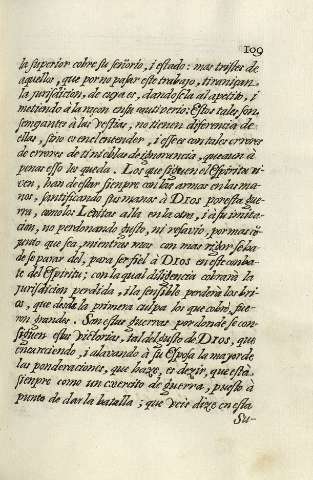 109
la superior cobre su señorio, i estado: mas tristes de
aquellos, que por no pasar este trabajo, tiranizan
la jurisdicion, de cuya es, dandosela al apetito, i
metiendo à la raçon en su cautiverio: Estos tales son
semejantes à las vestias, no tienen diferencia de
ellas, sino es en el entender, i ese es con tales errores
de errores de tinieblas de ignorancia, que aun à
penas eso les queda. Los que siguen el Espiritu vi-
ven, han de estar sienpre con las armas en las ma-
nos, santificando sus manos à Dios por esta gue-
rra, como los Levitas allà en la otra, i à su imita-
cion, no perdonando gusto, ni resavio, por mas con
junto que sea, mientras mas con mas rigor se ha
de separar del, para ser fiel à Dios en este conba-
te del Espiritu; con la qual diligencia cobrarà la
jurisdicion perdida, i la sensible perderà los bri-
os, que desde la primera culpa los que cobrò, fue-
ron grandes. Son estas guerras por donde se con-
siguen estas victorias, tal del gusto de Dios, que
encareciendo, i alavando à su Esposa la mayor de
las ponderaciones, que haze, es dezir, que està
sienpre como un exercito de guerra, puesto à
punto de dar la batalla; que veis dize en esta
Su-